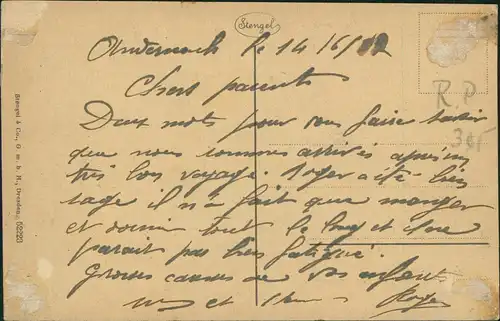 Stengel
Andernach le 14/6/
Chers parents
Deux mots pour vous faire savoir
que nous sommes arrivés après un
très bon voyage. Roger a été bien
sage il n'a fait que manger
et dormir tout le long et il ne
parait pas bien fatigué.
Grosses caresses de vos enfants
et Roger
R.P
Stengel & Co., G. m. b. H., Dresden. 52223